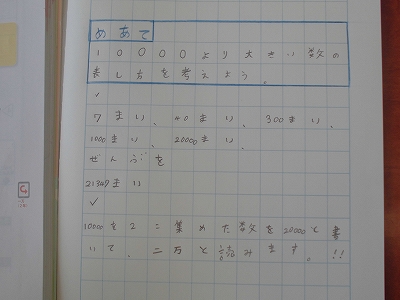 めあて
10000より大きい数の
表し方を考えよう。
7まい、40まい、300まい、
1000まい、20000まい、
ぜんぶを
21347まい
10000を2こ集めた数を20000と書
いて、二万と読みます。!!